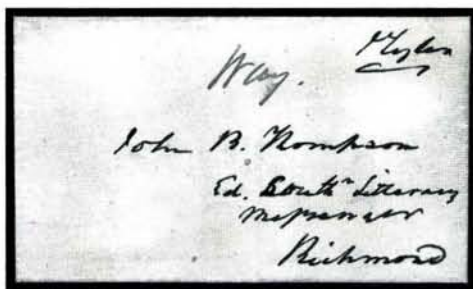 J Tyler
Way.
John R. Thompson
Ed. Southn Literary
Messenger
Richmond